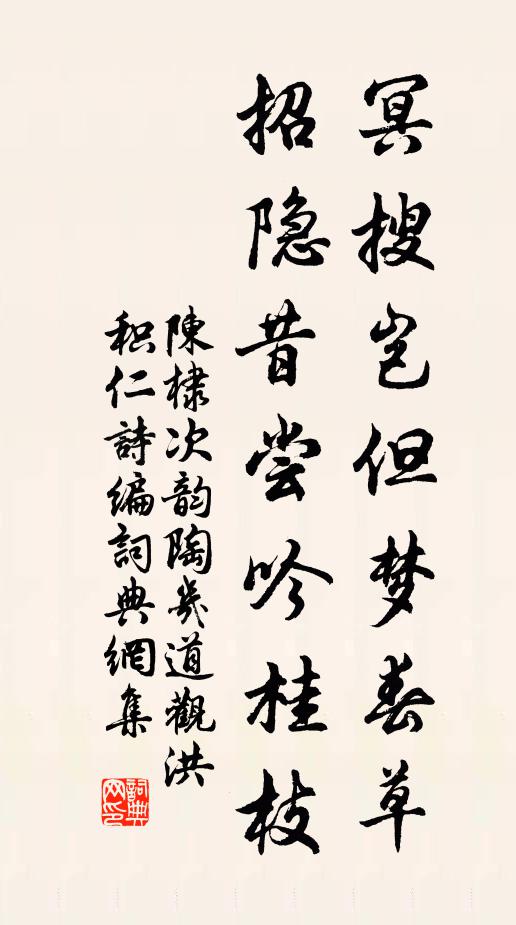 冥搜岂但梦春草
招隐昔尝吟桂枝
陳棣次韵陶幾道觀洪
积仁詩编詞典網集
詞典網印